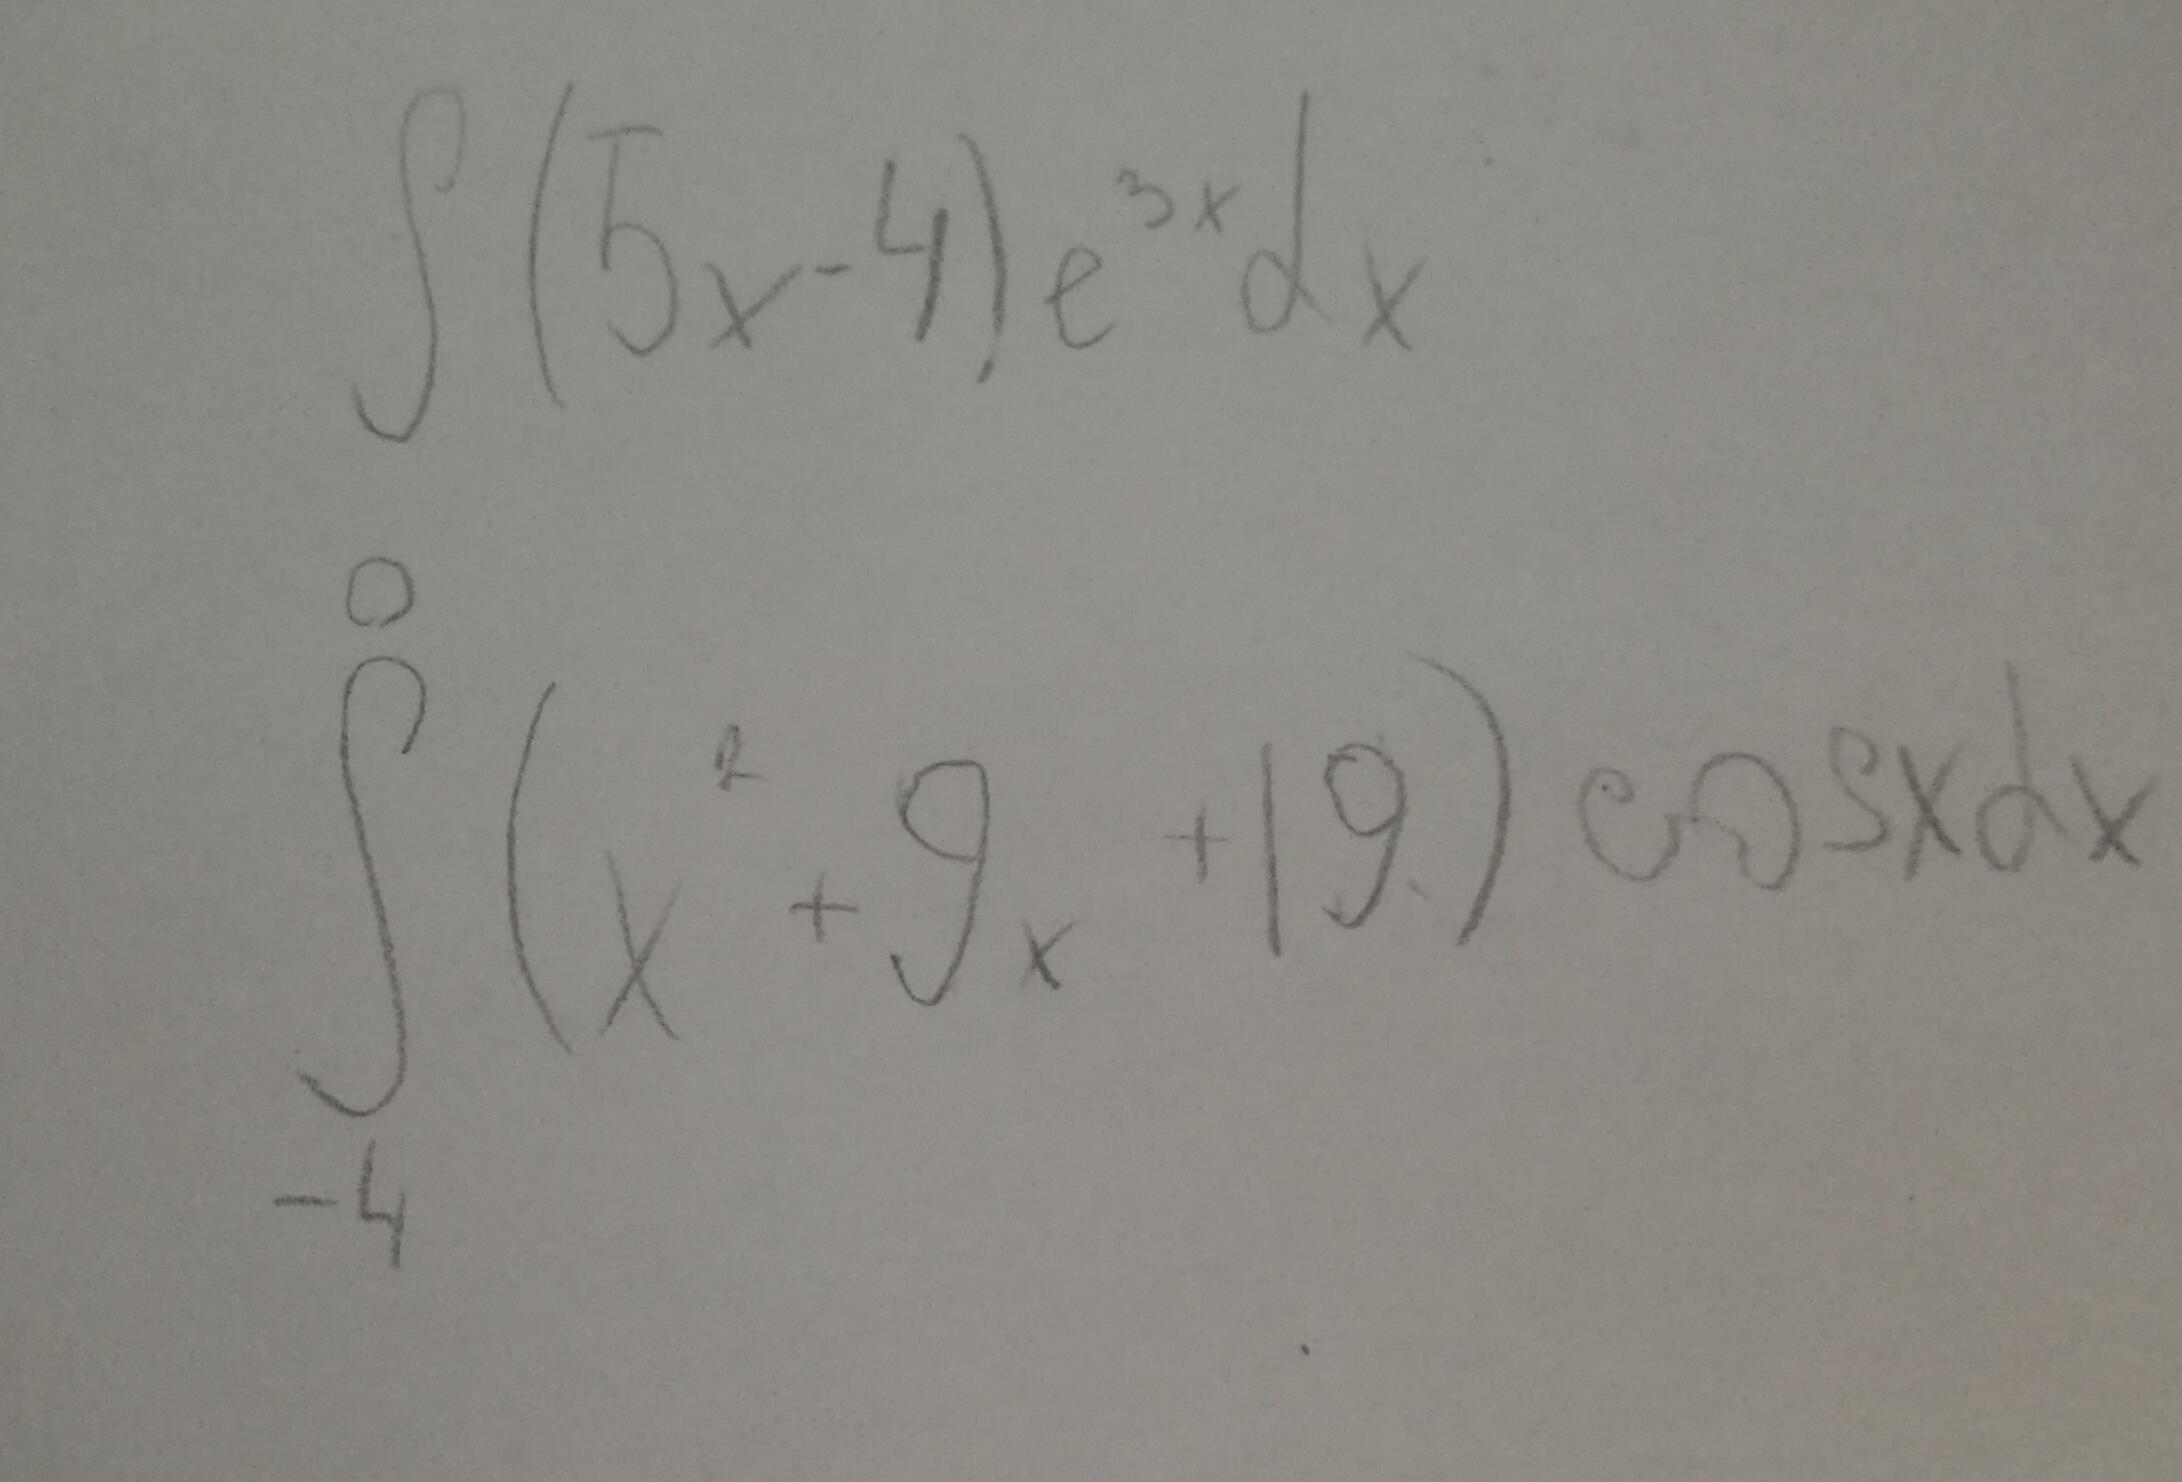 ∫(5x-4)e³ˣdx
0
∫(x²+9x+19)cosxdx
-4